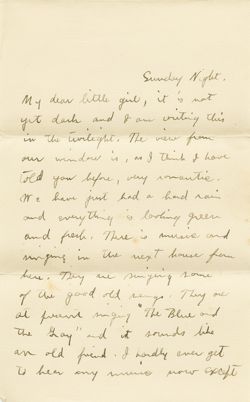 Sunday Night.
My dear little girl, it is not
yet dark and I am writing this
in the twilight. The view from
our window is, as I think I have
told you before, very romantic.
We have just had a hard rain
and everything is looking green
and fresh. There is music and
singing in the next house from
here. They are singing some
of the good old songs. They are
at present singing "The Blue and
the Gray" and it sounds like
an old friend. I hardly ever get
to hear any music now except